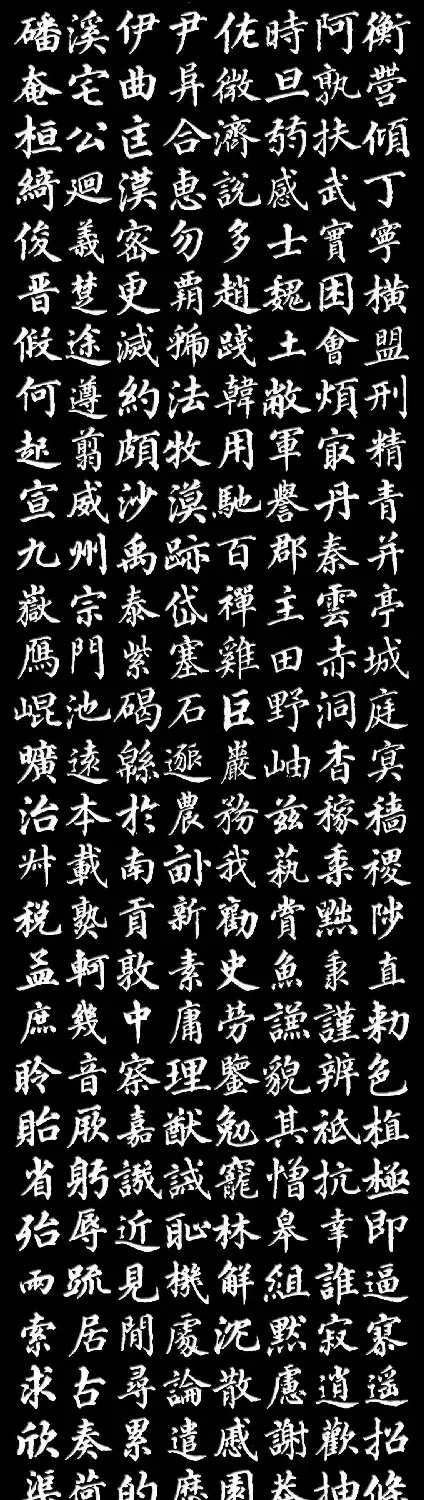 磻溪伊尹佐時阿衡
奄宅曲阜微旦孰營
桓公匡合濟弱扶傾
綺迴漢惠說感武丁
俊義密勿多士實寧
晋楚更霸趙魏困橫
假途滅虢踐土會盟
何遵約法韓敝煩刑
起翦頗牧用軍冣精
宣威沙漠馳譽丹青
九州禹跡百郡秦并
嶽宗泰岱禪主雲亭
鴈門紫塞雞田赤城
崐池碣石巨野洞庭
曠遠緜邈巖岫杳冥
治本於農務兹稼穡
載南畝我蓺黍稷
税熟貢新勸賞黜陟
孟軻敦素史魚秉直
庶幾中庸勞謙謹勅
聆音察理鑒貌辨色
貽厥嘉猷勉其祗植
省躬譏誡寵增抗極
殆辱近恥林皋幸即
兩疏見機解組誰逼
索居閒處沉默寂寥
求古尋論散慮逍遥
欣奏累遣慼謝歡招
渠荷的歷園莽抽條